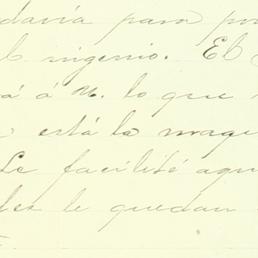 davia para po
l ingenio. El
á á U. lo que
está la maqu
Le facilité aqu
les le quedan